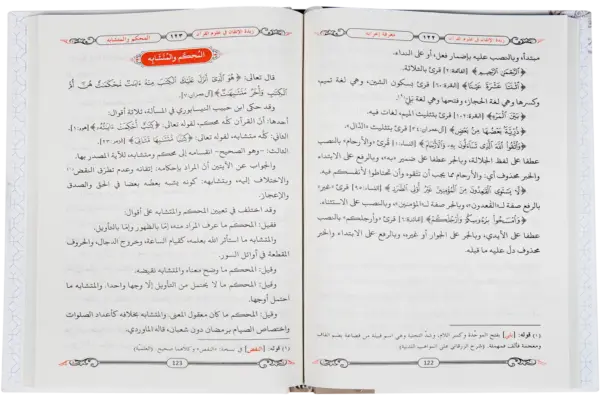 ١٢٢ زبدة الإتقان في علوم القرآن معرفة إعرابه
مبتدأ، وبالنصب عليه بإضمار فعل، أو على النداء.
﴿الرَّحْمَٰنِ الرَّحِيمِ﴾ [الفاتحة: ٣] قرئ بالثلاثة.
﴿اثْنَتَا عَشْرَةَ عَيْنًا﴾ [البقرة: ٦٠] قرئ بسكون الشين، وهي لغة تميم،
وكسرها وهي لغة الحجاز، وفتحها وهي لغة بلي(١).
﴿بَيْنَ الْمَرْءِ﴾ [البقرة: ١٠٢] قرئ بتثليث الميم، لغات فيه.
﴿ذُرِّيَّةً بَعْضُهَا مِنْ بَعْضٍ﴾ [آل عمران: ٣٤] قرئ بتثليث «الذال».
﴿وَاتَّقُوا اللَّهَ الَّذِي تَسَاءَلُونَ بِهِ وَالْأَرْحَامَ﴾ [النساء: ١] قرئ «والأرحام» بالنصب
عطفا على لفظ الجلالة، وبالجر عطفا على ضمير «به»، وبالرفع على الابتداء
والخبر محذوف أي: والأرحام مما يجب أن تتقوه وأن تحتاطوا لأنفسكم فيه.
﴿لَا يَسْتَوِي الْقَاعِدُونَ مِنَ الْمُؤْمِنِينَ غَيْرُ أُولِي الضَّرَرِ﴾ [النساء: ٩٥] قرئ «غير»
بالرفع صفة لـ«القعدون»، وبالجر صفة لـ«المؤمنين»، وبالنصب على الاستثناء.
﴿وَامْسَحُوا بِرُءُوسِكُمْ وَأَرْجُلَكُمْ﴾ [المائدة: ٦] قرئ «وأرجلكم» بالنصب
عطفا على الأيدي، وبالجر على الجوار أو غيره، وبالرفع على الابتداء والخبر
محذوف دل عليه ما قبله.
(١) قوله: [بلي] بفتح الموحدة وكسر اللام، وشد التحتية وهي اسم قبيلة من قضاعة بضم القاف
ومعجمة فألف فمهملة. (شرح الزرقاني على المواهب اللدنية)
122
زبدة الإتقان في علوم القرآن ١٢٣ المحكم والمتشابه
المُحكم والمُتشابه
قال تعالى: ﴿هُوَ الَّذِي أَنْزَلَ عَلَيْكَ الْكِتَابَ مِنْهُ آيَاتٌ مُحْكَمَاتٌ هُنَّ أُمُّ
الْكِتَابِ وَأُخَرُ مُتَشَابِهَاتٌ﴾ [آل عمران: ٧].
وقد حكى ابن حبيب النيسابوري في المسألة، ثلاثة أقوال:
أحدها: أن القرآن كلّه محكم، لقوله تعالى: ﴿كِتَابٌ أُحْكِمَتْ آيَاتُهُ﴾ [هود: ١].
الثاني: كلّه متشابه، لقوله تعالى: ﴿كِتَابًا مُتَشَابِهًا مَثَانِيَ﴾ [الزمر: ٢٣].
الثالث: -وهو الصحيح- انقسامه إلى محكم ومتشابه، للآية المصدر بها.
والجواب عن الآيتين أن المراد بإحكامه: إتقانه وعدم تطرق النقض(١)
والاختلاف إليه، وبتشابهه: كونه يشبه بعضُه بعضا في الحق والصدق
والإعجاز.
وقد اختلف في تعيين المحكم والمتشابه على أقوال.
فقيل: المحكم ما عرف المراد منه، إمّا بالظهور وإمّا بالتأويل.
والمتشابه ما استأثر الله بعلمه، كقيام الساعة، وخروج الدجال، والحروف
المقطعة في أوائل السور.
وقيل: المحكم ما وضح معناه، والمتشابه نقيضه.
وقيل: المحكم ما لا يحتمل من التأويل إلّا وجها واحدا. والمتشابه ما
احتمل أوجها.
وقيل: المحكم ما كان معقول المعنى. والمتشابه بخلافه كأعداد الصلوات
واختصاص الصيام برمضان دون شعبان، قاله الماوردي.
(١) قوله: [النقض] في نسخة: «النقص» وكلاهما صحيح. (العلمية)
123